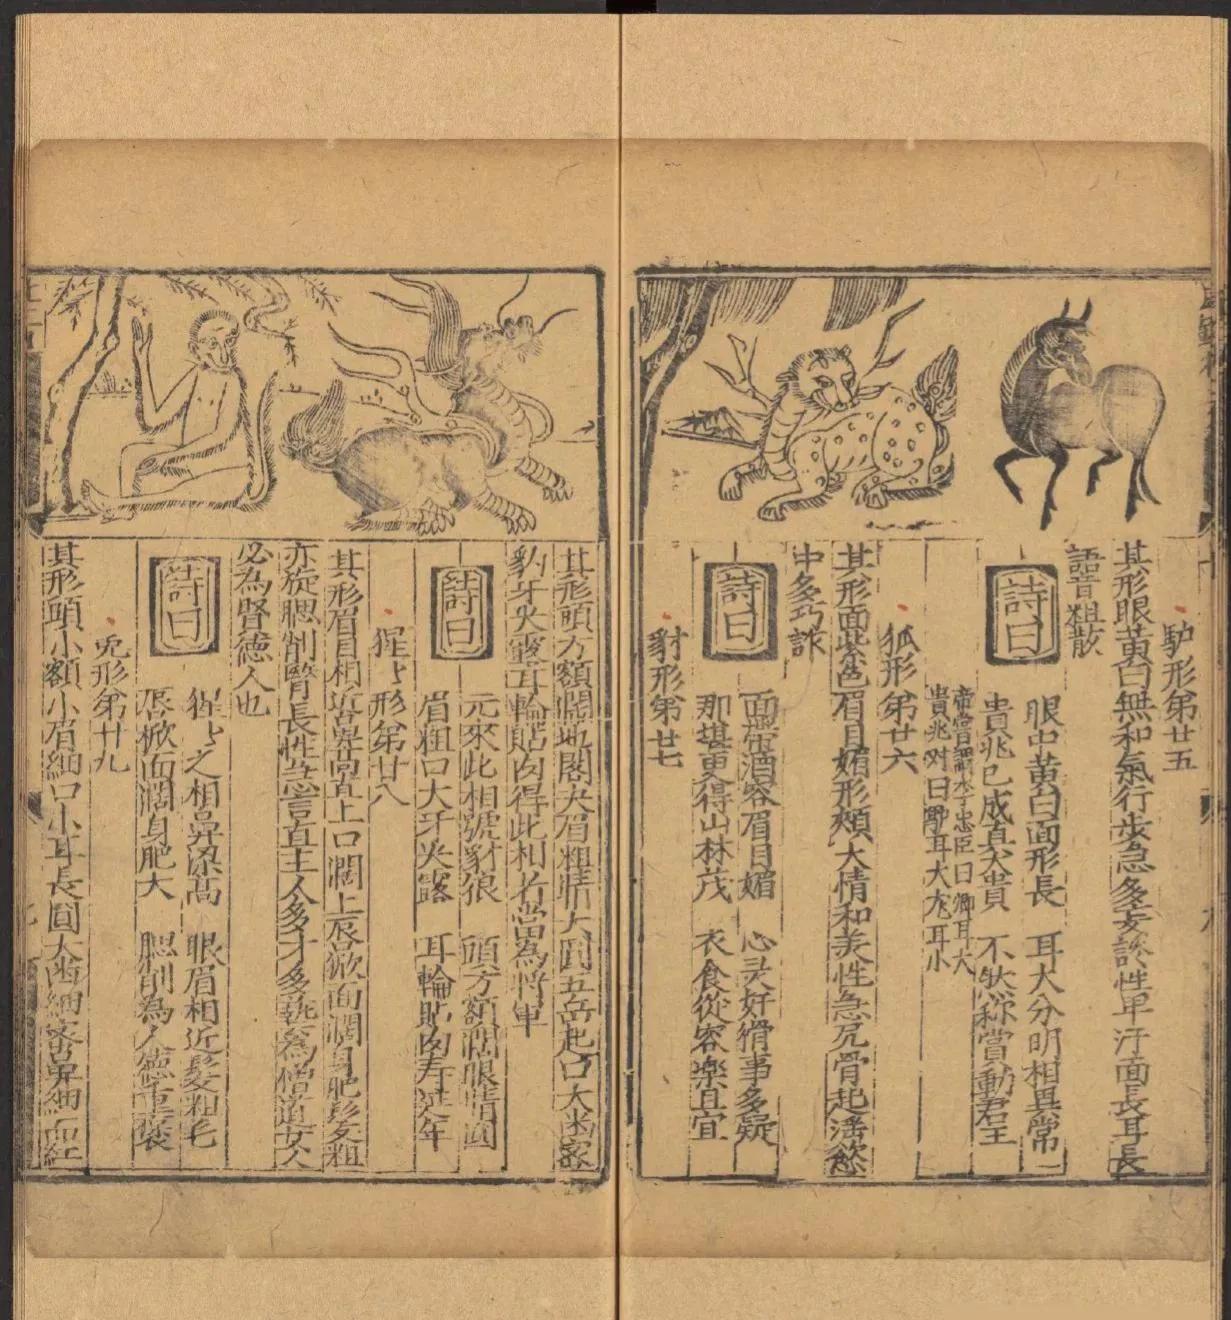 馿形第廿五
其形眼黃白無和氣行步急多妄談性卑汙面長耳長
語音粗散
詩曰
眼中黃白面形長 耳大分明相異常
貴兆已成真大貴 不然称賞動君王
帝嘗謂李忠臣曰卿耳大
貴兆对曰馿耳大龙耳小
狐形第廿六
其形面紫色眉目媚形頰大情和美性急尻骨起淫慾
中多巧詐
詩曰
面帶酒容眉目媚 心灵奸猾事多疑
那堪更得山林茂 衣食從容樂且宜
豺形第廿七
其形頭方額濶地閣大眉粗睛大圓五岳起口大歯密
豹牙尖露耳輪貼肉得此相者當為將軍
詩曰
元來此相號豺狼 頭方額濶眼睛圓
眉粗口大牙尖露 耳輪貼肉寿延年
猩〻形第廿八
其形眉目相近鼻鼻直上口濶上唇掀面濶身肥髮粗
亦旋腮削臂長性急言直主人多才多藝為僧道女人
必為賢德人也
詩曰
猩〻之相鼻梁高 眼眉相近髮粗毛
唇掀面濶身肥大 腮削為人德重
兎形第廿九
其形頭小額小眉細口小耳長圓大歯細密鼻細而紅